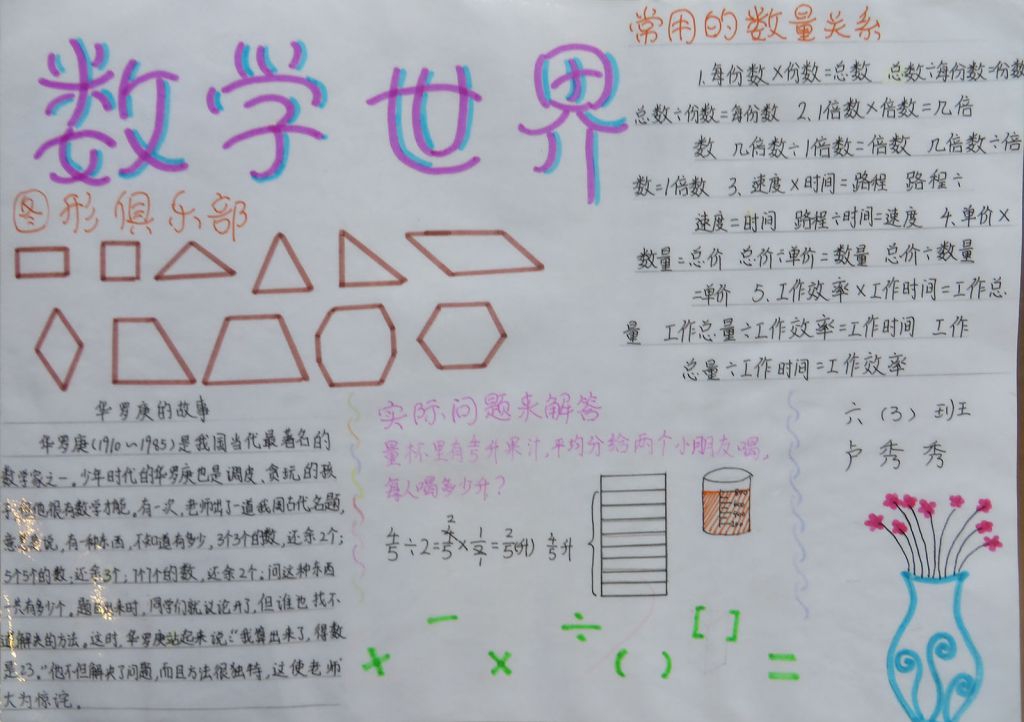 数学世界
常用的数量关系
1.每份数×份数=总数 总数÷每份数=份数
总数÷份数=每份数 2、1倍数×倍数=几倍
数 几倍数÷1倍数=倍数 几倍数÷倍
数=1倍数 3、速度×时间=路程 路程÷
速度=时间 路程÷时间=速度 4、单价×
数量=总价 总价÷单价=数量 总价÷数量
=单价 5、工作效率×工作时间=工作总
量 工作总量÷工作效率=工作时间 工作
总量÷工作时间=工作效率
图形俱乐部
华罗庚的故事
华罗庚(1910~1985)是我国当代最著名的
数学家之一。少年时代的华罗庚也是调皮、贪玩的孩
子,但他很有数学才能。有一次,老师出了一道我国古代名题,
意思是说,有一种东西,不知道有多少,3个3个的数,还余2个;
5个5个的数,还余3个;7个7个的数,还余2个;问这种东西
一共有多少个。题目出来时,同学们就议论开了,但谁也找不
到解决的方法。这时,华罗庚站起来说:“我算出来了,得数
是23。”他不但解决了问题,而且方法很独特,这使老师
大为惊诧。
实际问题来解答
量杯里有4/5升果汁,平均分给两个小朋友喝,
每人喝多少升?
4/5÷2=4/5×1/2=2/5(升) 4/5升
+ − × ÷ ( ) [ ] =
六(3)班
卢秀秀